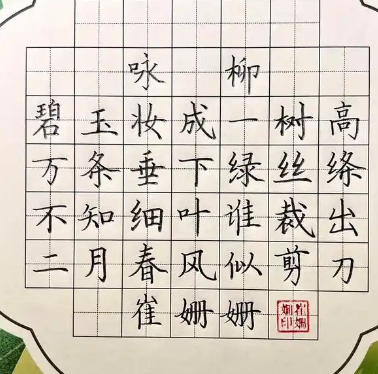 咏柳
碧玉妆成一树高
万条垂下绿丝绦
不知细叶谁裁出
二月春风似剪刀
崔姗姗
崔姗姗印